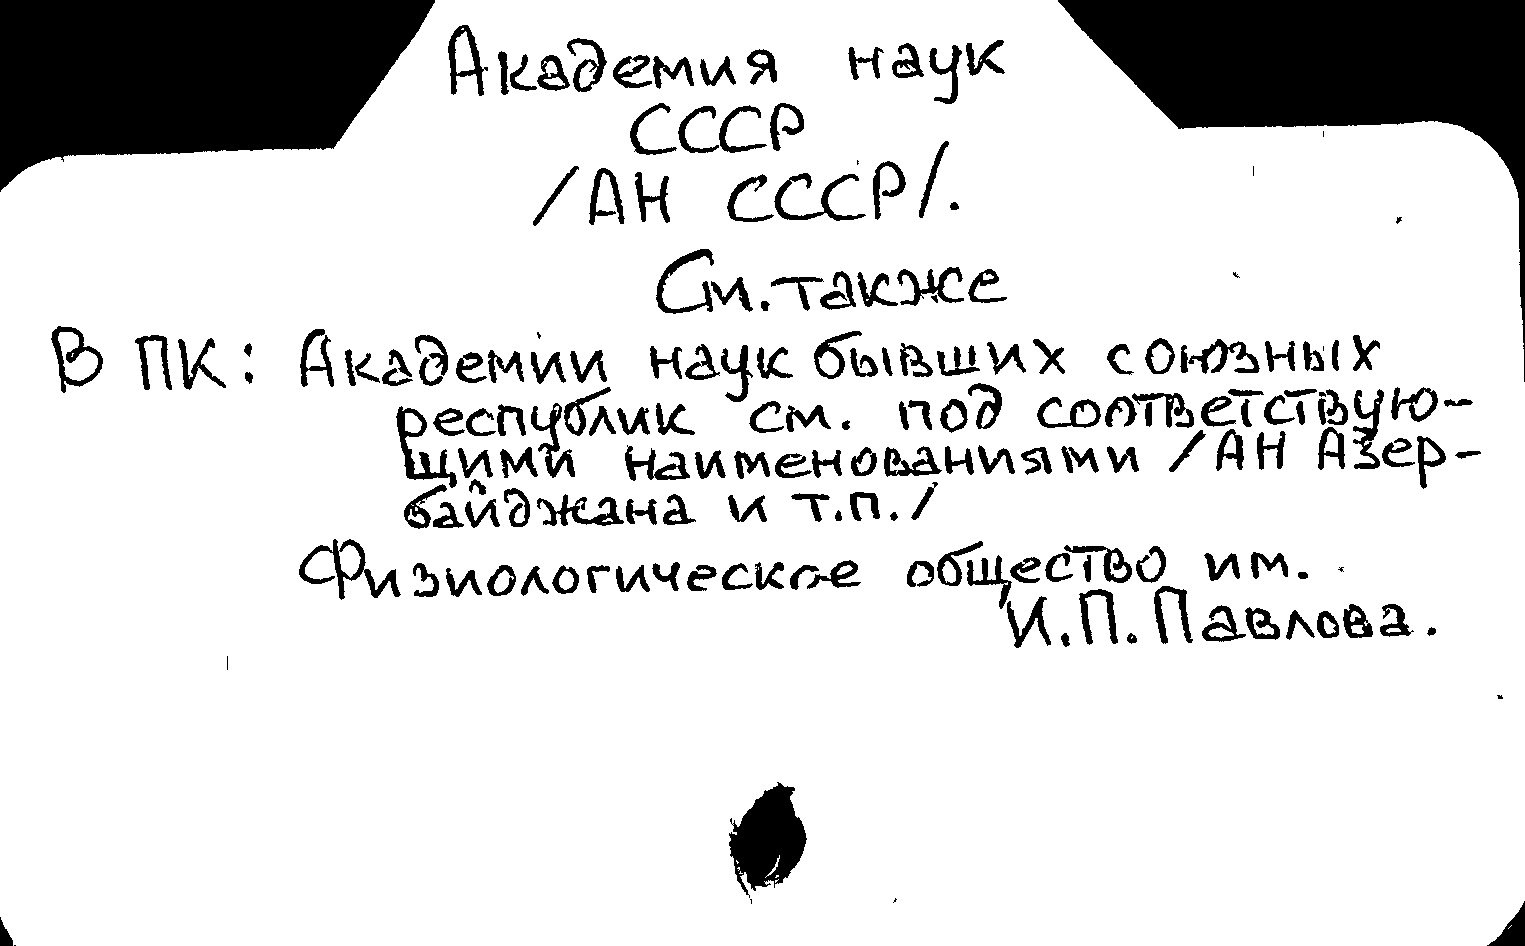 Академия наук
СССР
/АН СССР/.
См. также
В ПК: Академии наук бывших союзных
республик см. под соответствую-
щими наименованиями /АН Азер-
байджана и т.п./
Физиологическое общество им.
И.П. Павлова.